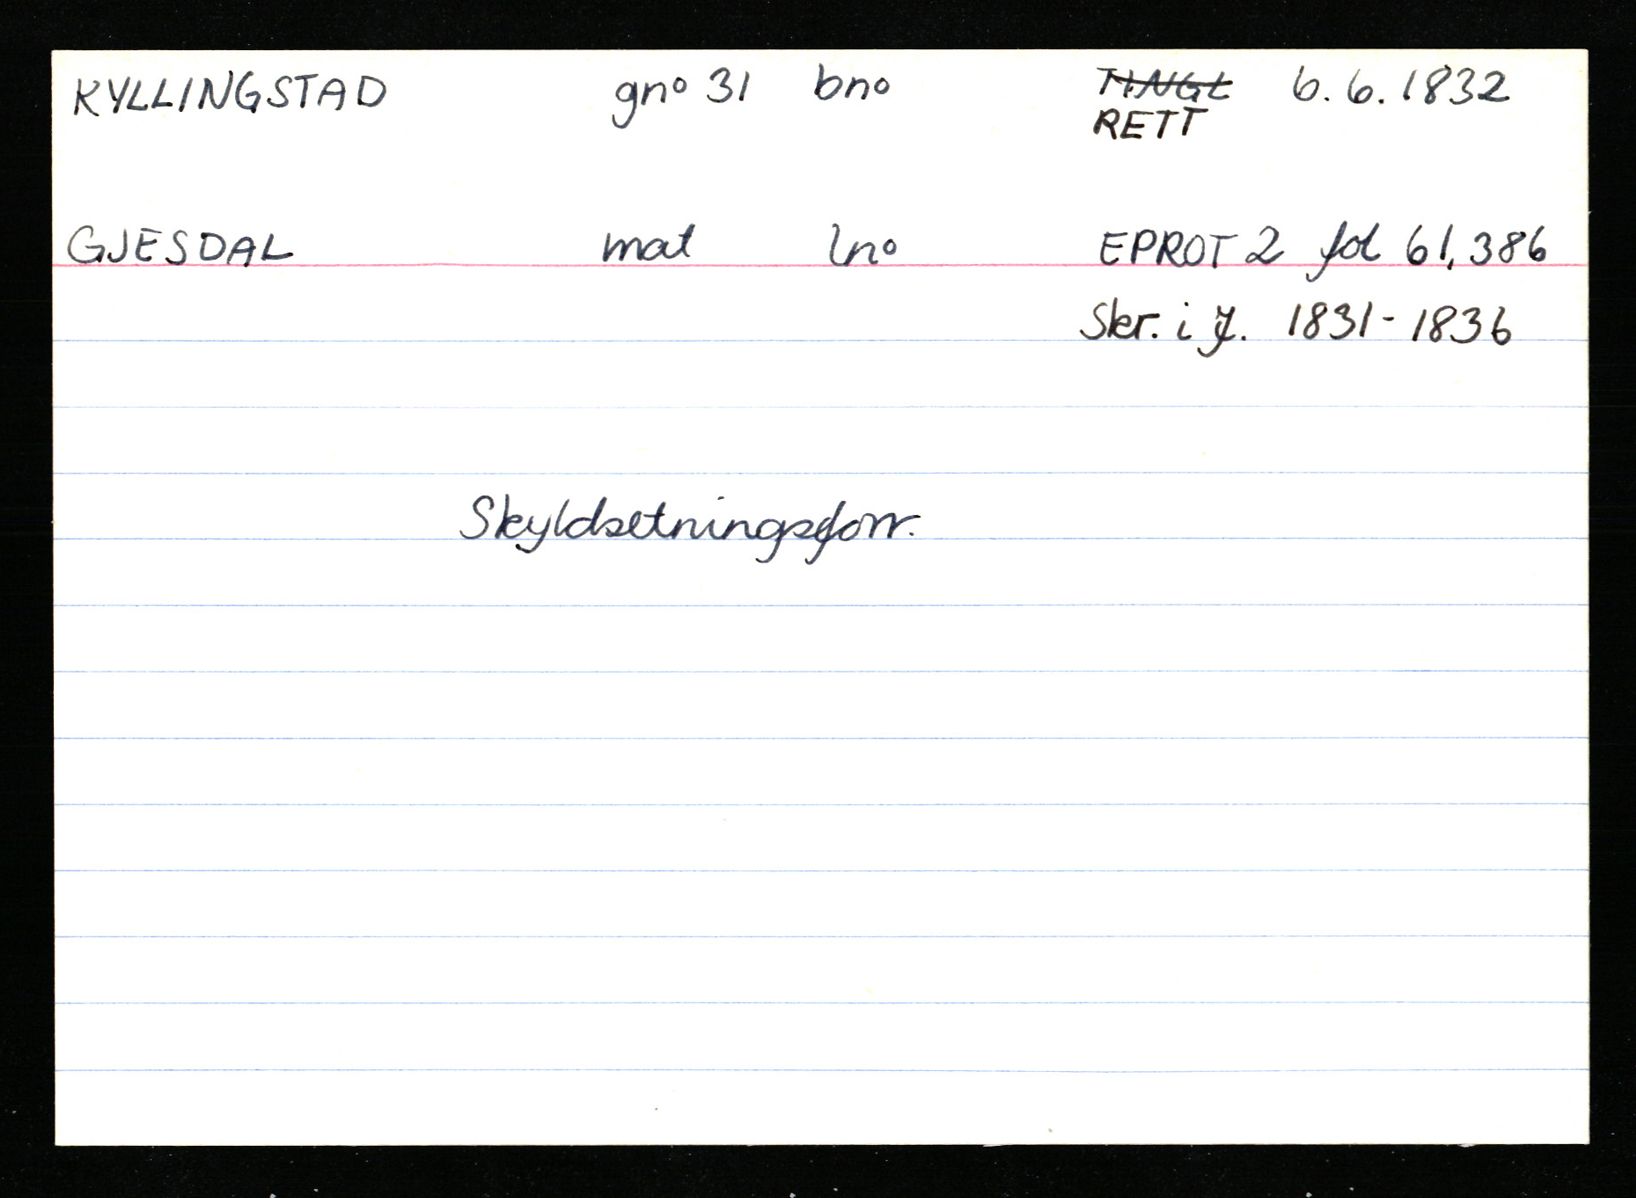 KYLLINGSTAD gno 31 bno TINGL 6.6.1832
RETT
GJESDAL mat lno EPROT 2 fol 61, 386
Skr. i J. 1831-1836
Skyldsetningsforr.